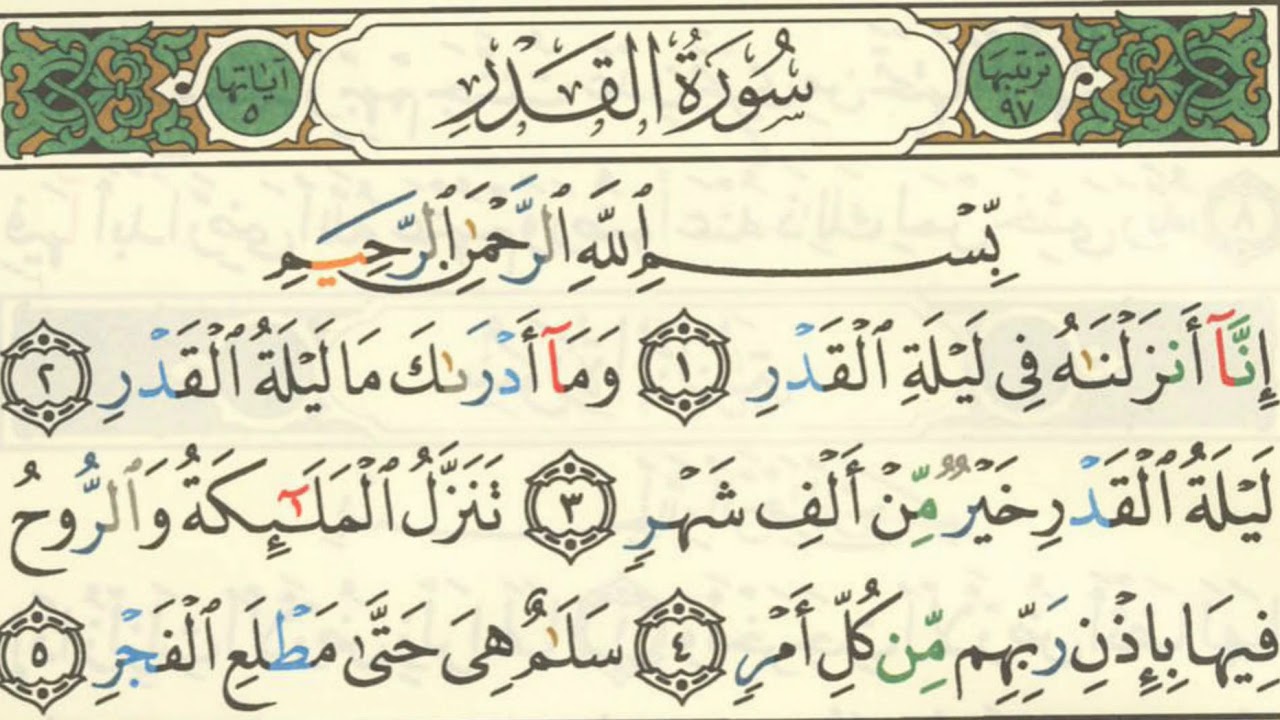 ترتيبها
٩٧
سُورَةُ القَدْرِ
آياتها
٥
بِّسْمِ ٱللَّهِ ٱلرَّحْمَٰنِ ٱلرَّحِيمِ
إِنَّآ أَنزَلْنَٰهُ فِى لَيْلَةِ ٱلْقَدْرِ ١ وَمَآ أَدْرَىٰكَ مَا لَيْلَةُ ٱلْقَدْرِ ٢
لَيْلَةُ ٱلْقَدْرِ خَيْرٌ مِّنْ أَلْفِ شَهْرٍ ٣ تَنَزَّلُ ٱلْمَلَٰٓئِكَةُ وَٱلرُّوحُ
فِيهَا بِإِذْنِ رَبِّهِم مِّن كُلِّ أَمْرٍ ٤ سَلَٰمٌ هِىَ حَتَّىٰ مَطْلَعِ ٱلْفَجْرِ ٥